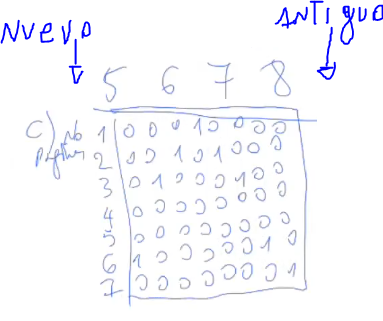 NUEVO ANTIGUO
5 6 7 8
C) No 1 0 0 0 1 0 0 0 0
2 0 0 1 0 1 0 0 0
3 0 1 0 0 0 1 0 0
4 0 0 0 0 0 0 0 0
5 0 0 0 0 0 0 0 0
6 1 0 0 0 0 0 1 0
7 0 0 0 0 0 0 0 1